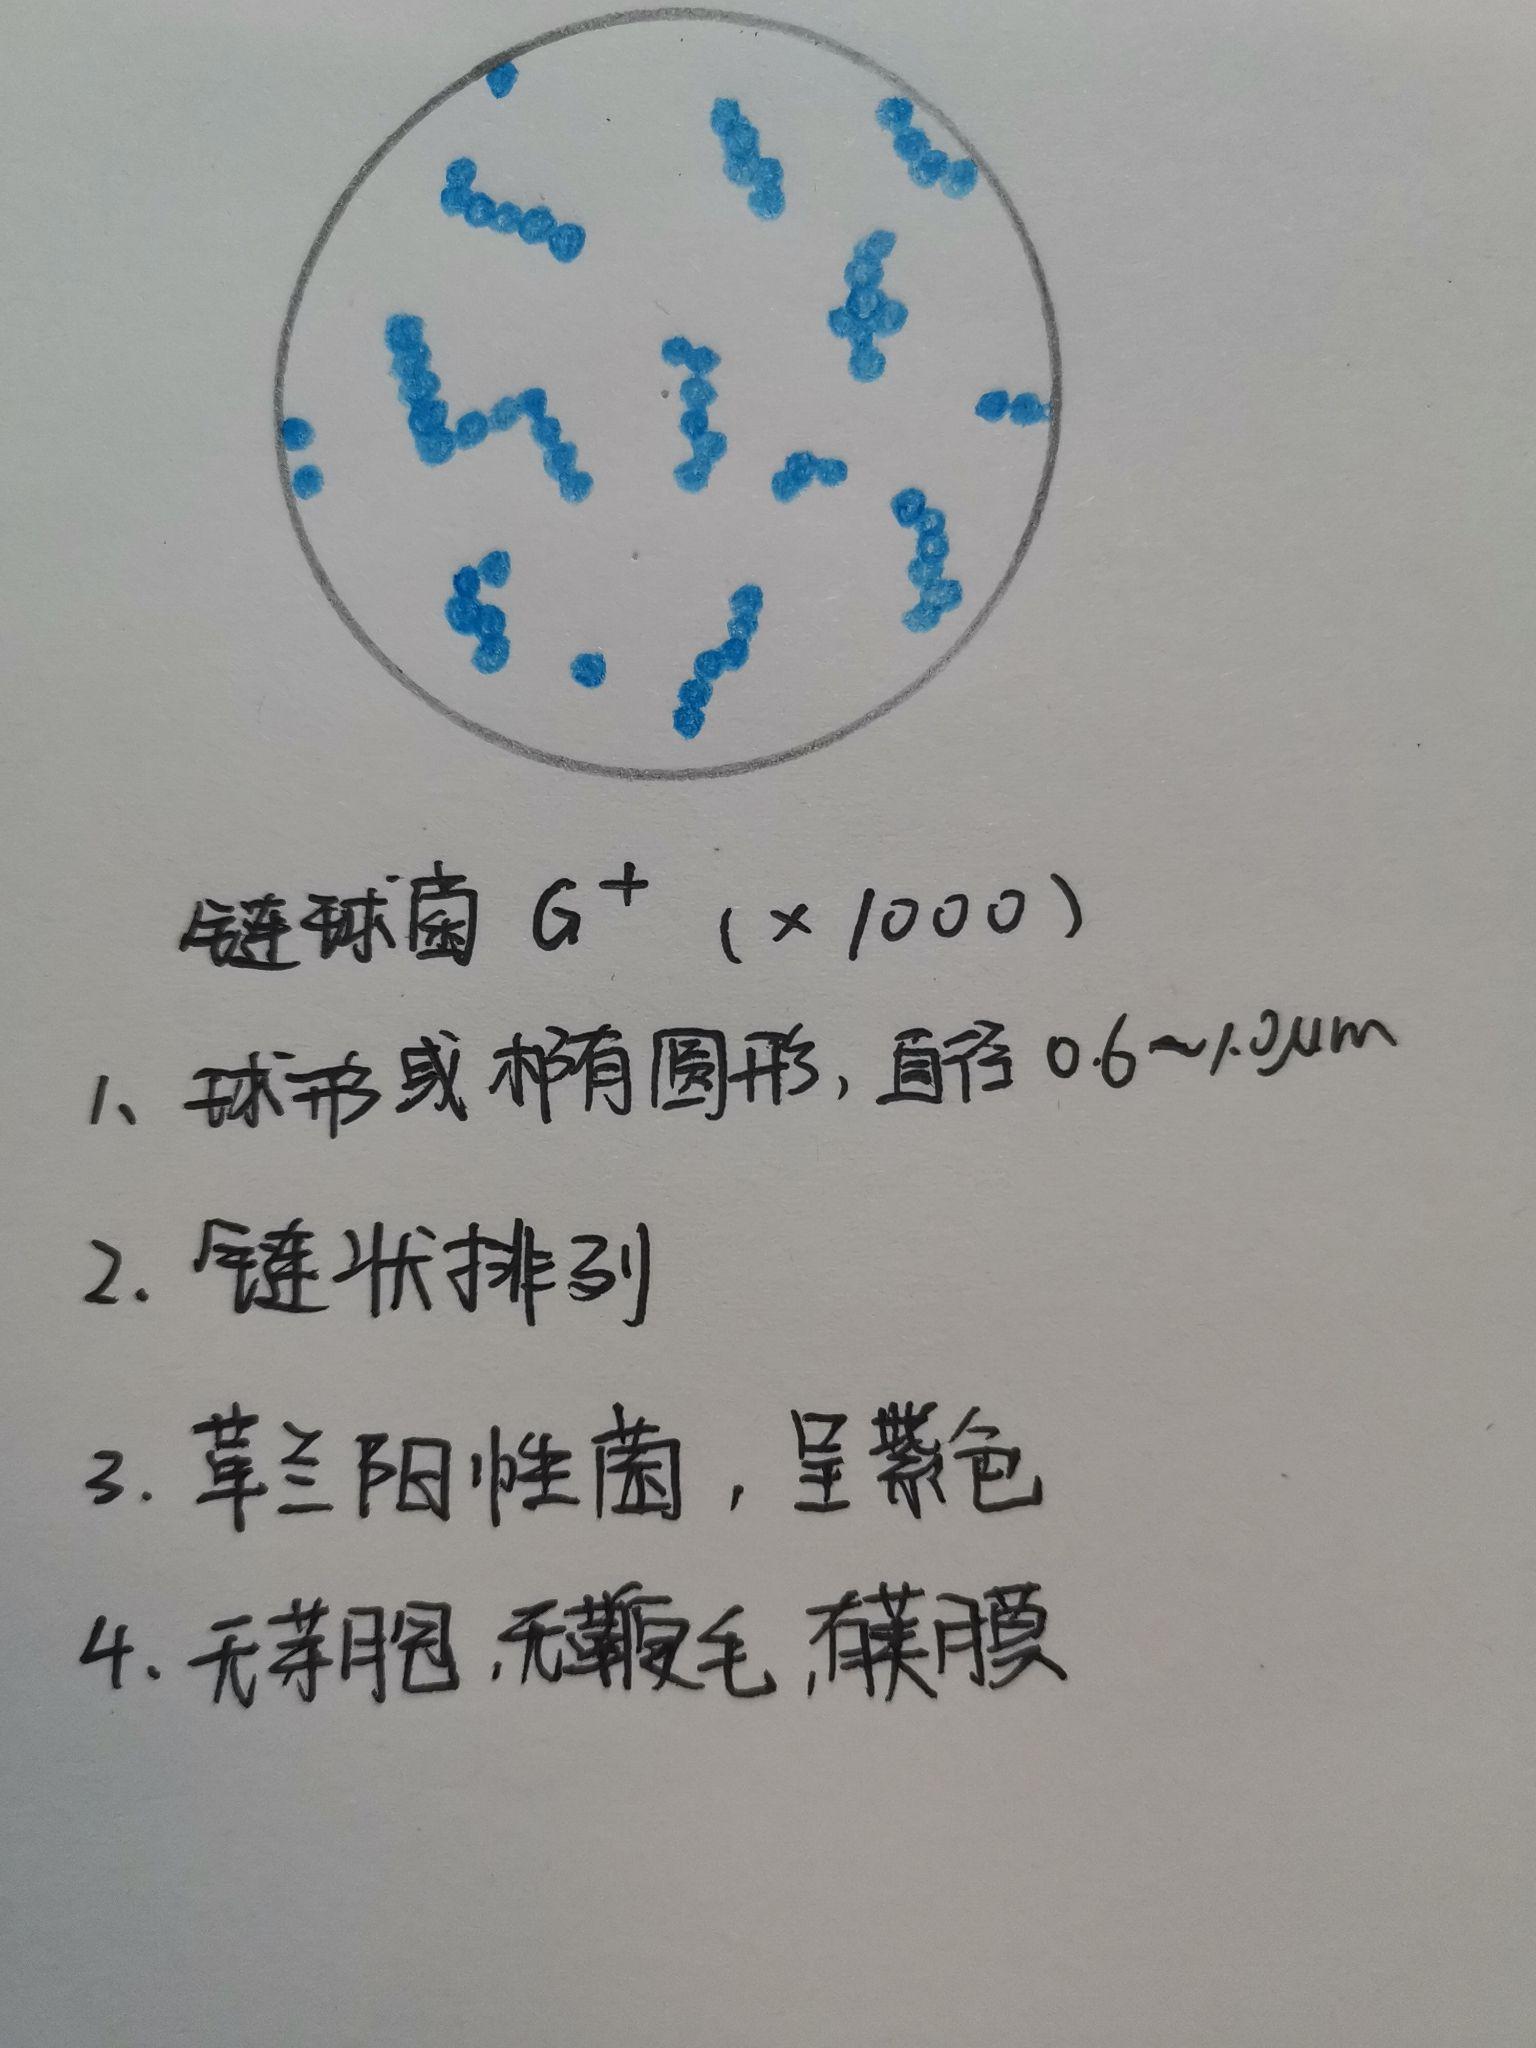 链球菌 G⁺ (×1000)
1、球形或椭圆形,直径 0.6~1.0μm
2. 链状排列
3. 革兰阳性菌,呈紫色
4. 无芽胞,无鞭毛,有荚膜